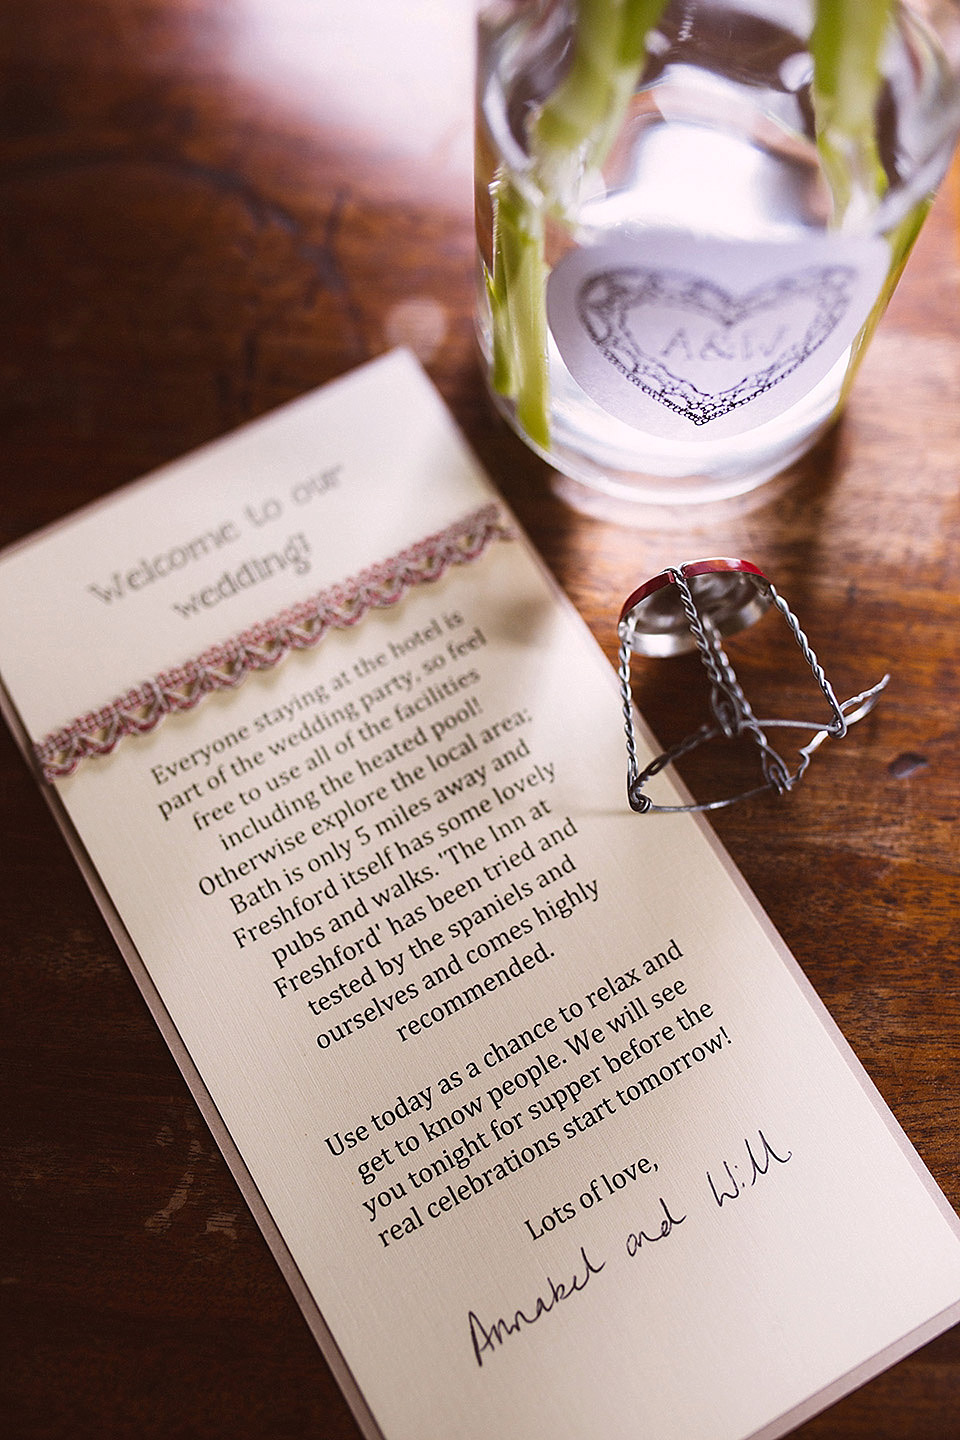 A&W
Welcome to our
wedding!
Everyone staying at the hotel is
part of the wedding party, so feel
free to use all of the facilities
including the heated pool!
Otherwise explore the local area;
Bath is only 5 miles away and
Freshford itself has some lovely
pubs and walks. 'The Inn at
Freshford' has been tried and
tested by the spaniels and
ourselves and comes highly
recommended.
Use today as a chance to relax and
get to know people. We will see
you tonight for supper before the
real celebrations start tomorrow!
Lots of love,
Annabel and Will